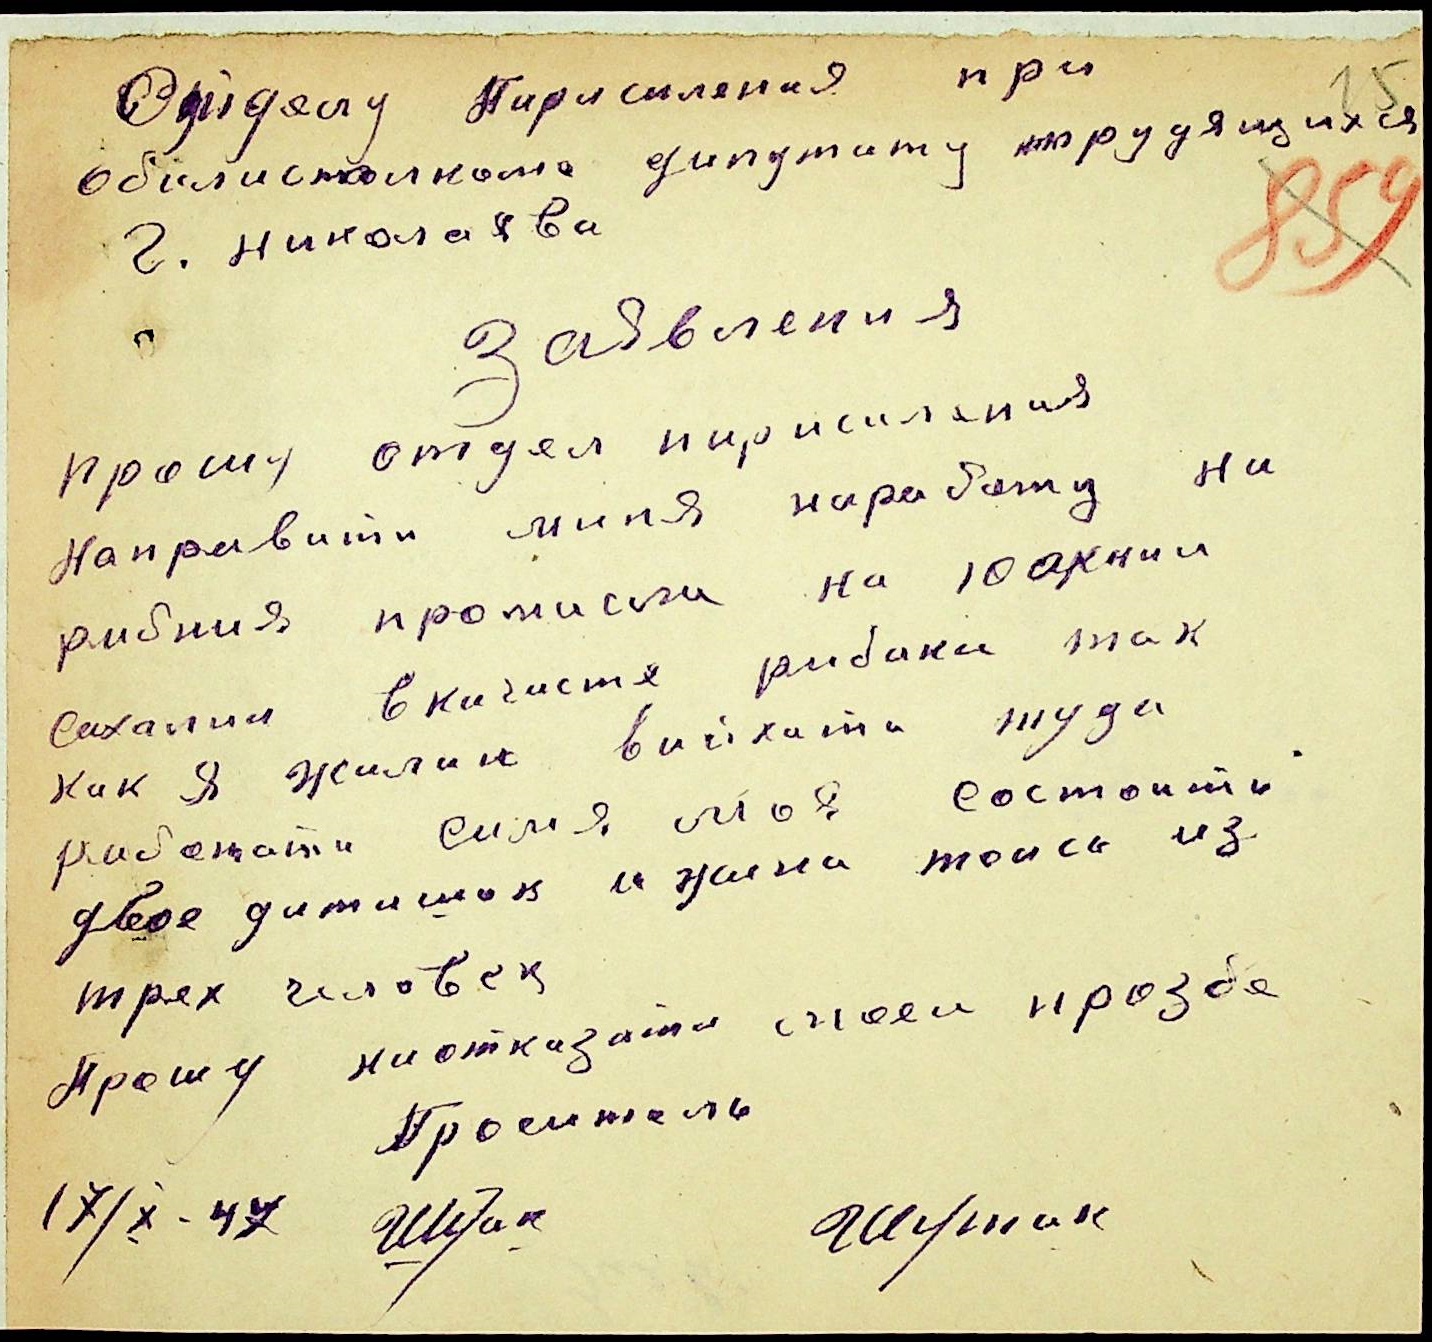 Отделу Пирисиления при
облисполкоме дипутату трудящихся
г. николаява
15
859
Заявления
прошу отдел пирисиления
Направити миня наработу на
рибния промисли на юожнии
сахалин вкичистя рибаки так
как я жилаю виїхати туда
работати симя моя состоити
двое дитишок и жина тоись из
трех человек
Прошу ниотказати моеи прозбе
Проситель
17/X-47 Шутак Шутак